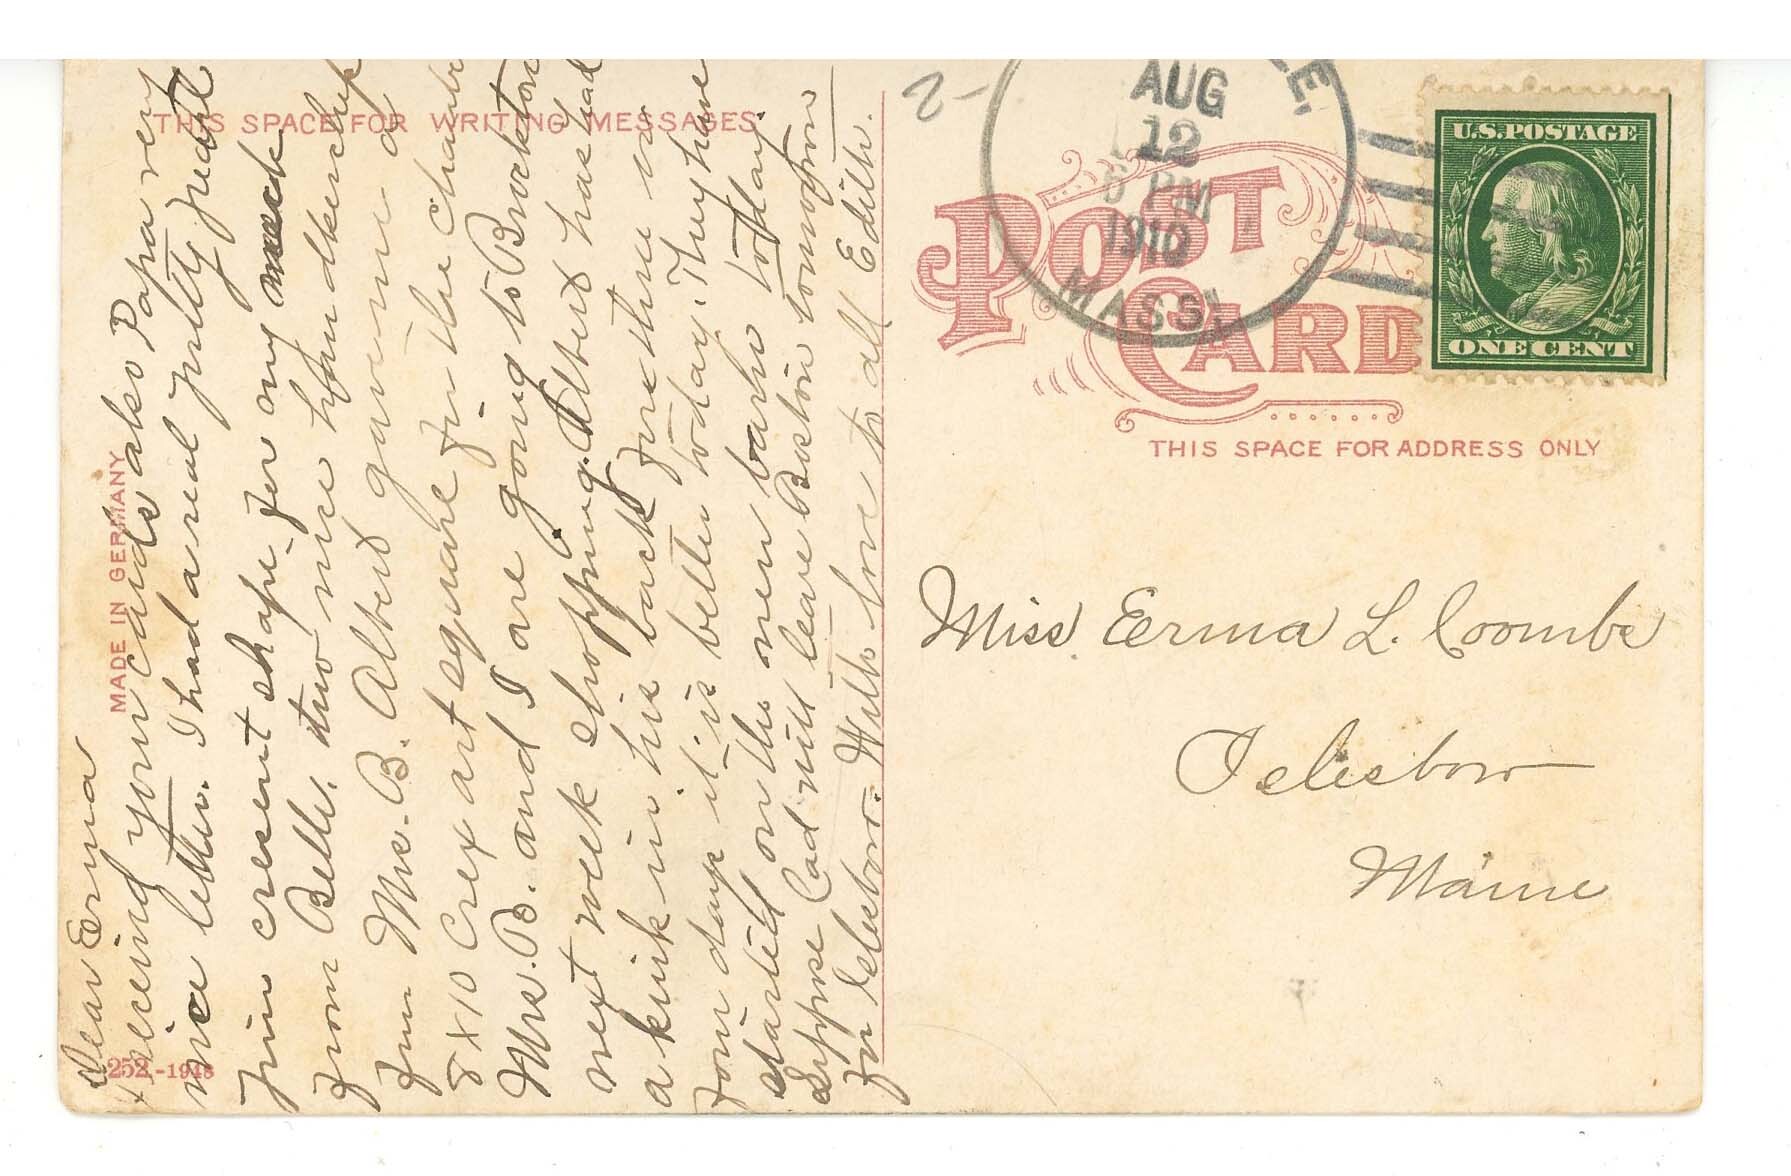 THIS SPACE FOR WRITING MESSAGES
Dear Erma
Received your cards also Papa very
nice letter. I had a real pretty pearl
pin cresent shape for my neck
from Belle, two nice handkerchief
from Mrs. B. Albert gave me a
8 x 10 Crex art square for the chamber
Mrs. B. and I are going to Brockton
next week shopping. Albert has had
a kink in his back for three or
four days it is better today. They have
started on the new barn today.
Suppose Cad will leave Boston tomorrow
for Islesboro. With love to all Edith.
MADE IN GERMANY
252 - 1948
2-
E,
AUG
12
6 PM
1910
MASS.
U.S. POSTAGE
ONE CENT
POST
CARD
THIS SPACE FOR ADDRESS ONLY
Miss. Erma L. Coombs
Islesboro
Maine